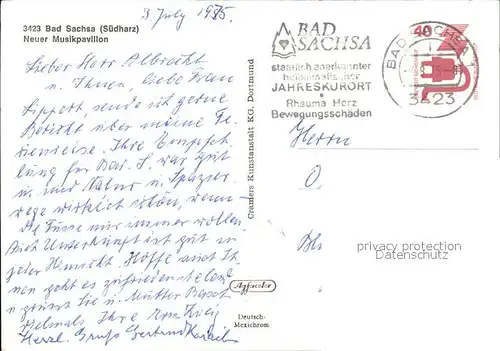 3 July 1975
3423 Bad Sachsa (Südharz)
Neuer Musikpavillon
Lieber Herr Albrecht
u. Ihnen, liebe Frau
Lippert, sende ich gerne
Bericht über meine Fe-
rienreise. Ihre Empfeh-
lung für Bad S. war gut
u. Natur u. Spazier-
wege wirklich schön, wenn
die Füsse nur immer wollen.
Unterkunft ist gut in
jeder Hinsicht. Hoffe auch
geht es zufriedenstellend
u. grüsse Sie u. Mutter
vielmals Ihre
Herzl. Gruß Gertrud
Cramers Kunstanstalt KG, Dortmund
Agfacolor
Deutsch-
Mexichrom
BAD
SACHSA
staatlich anerkannter
heilklimatischer
JAHRESKURORT
Rheuma Herz
Bewegungsschäden
BAD SACHSA 1
3423
40
Herrn
O.
privacy protection
Datenschutz